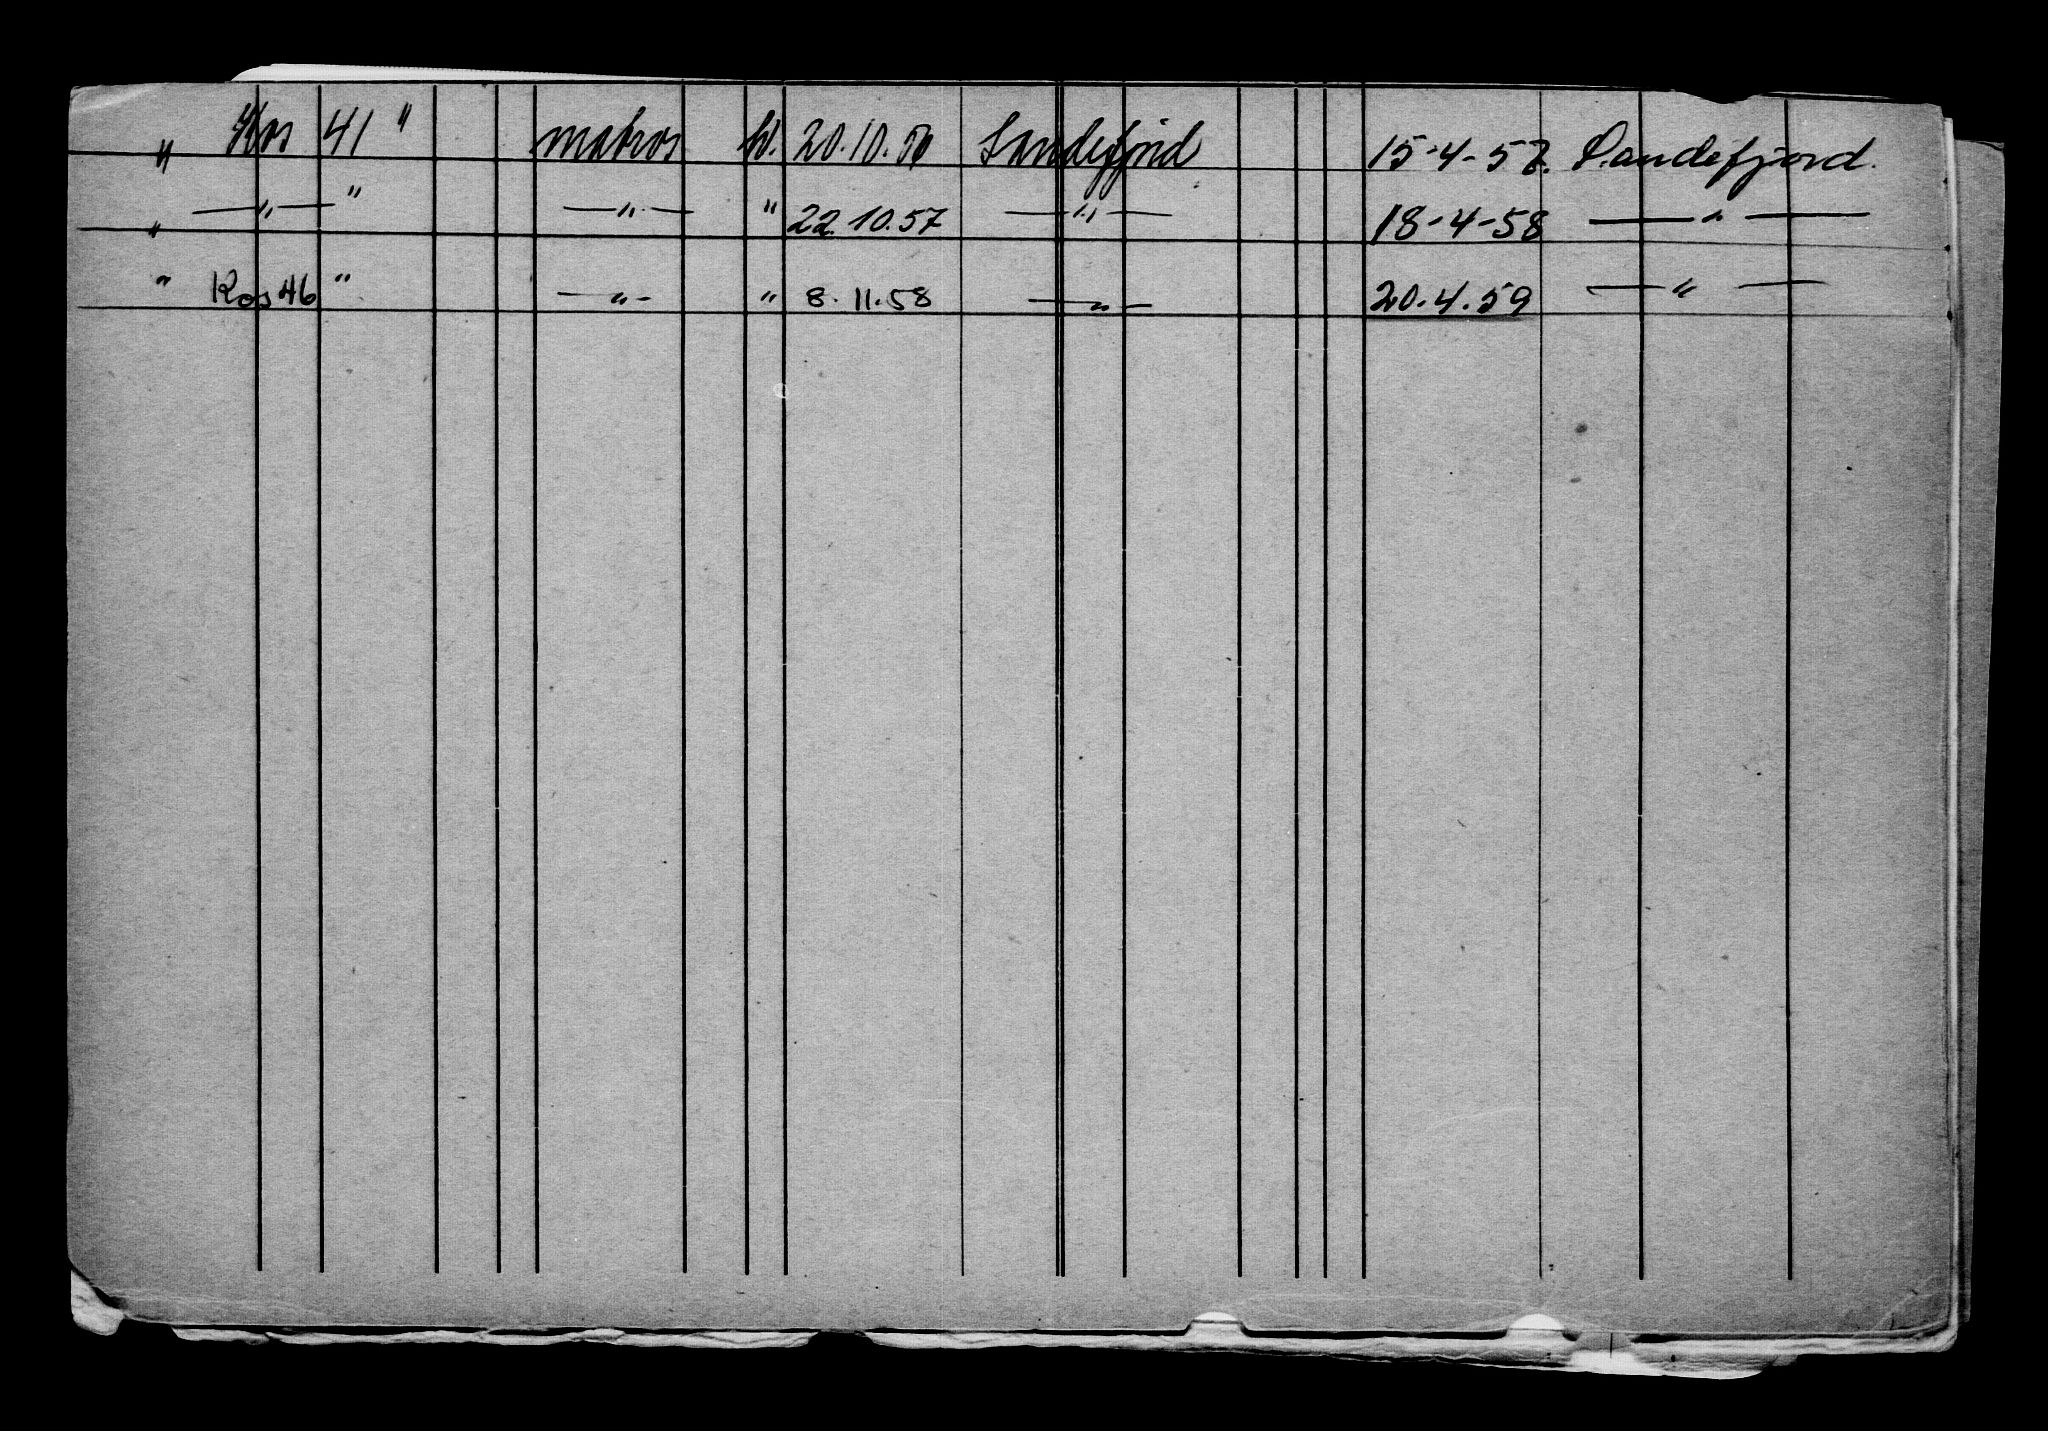 " Kos 41 " matros hv. 20.10.56 Sandefjord 15-4-57. Sandefjord.
" — " — " — " — " 22.10.57 — " — 18-4-58 — " —
" Kos 46 " — " — " 8.11.58 — " — 20.4.59 — " —